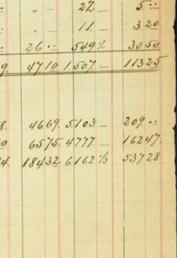 " " - 22 - 5 ""
" " - 11 - 3.20
26 " 549½ 3050
9. 4710 1507 - 11325
8. 4669. 5103 - 209 ""
0 6575 4777 - 16247.
4. 18432 6162⅔ 53728